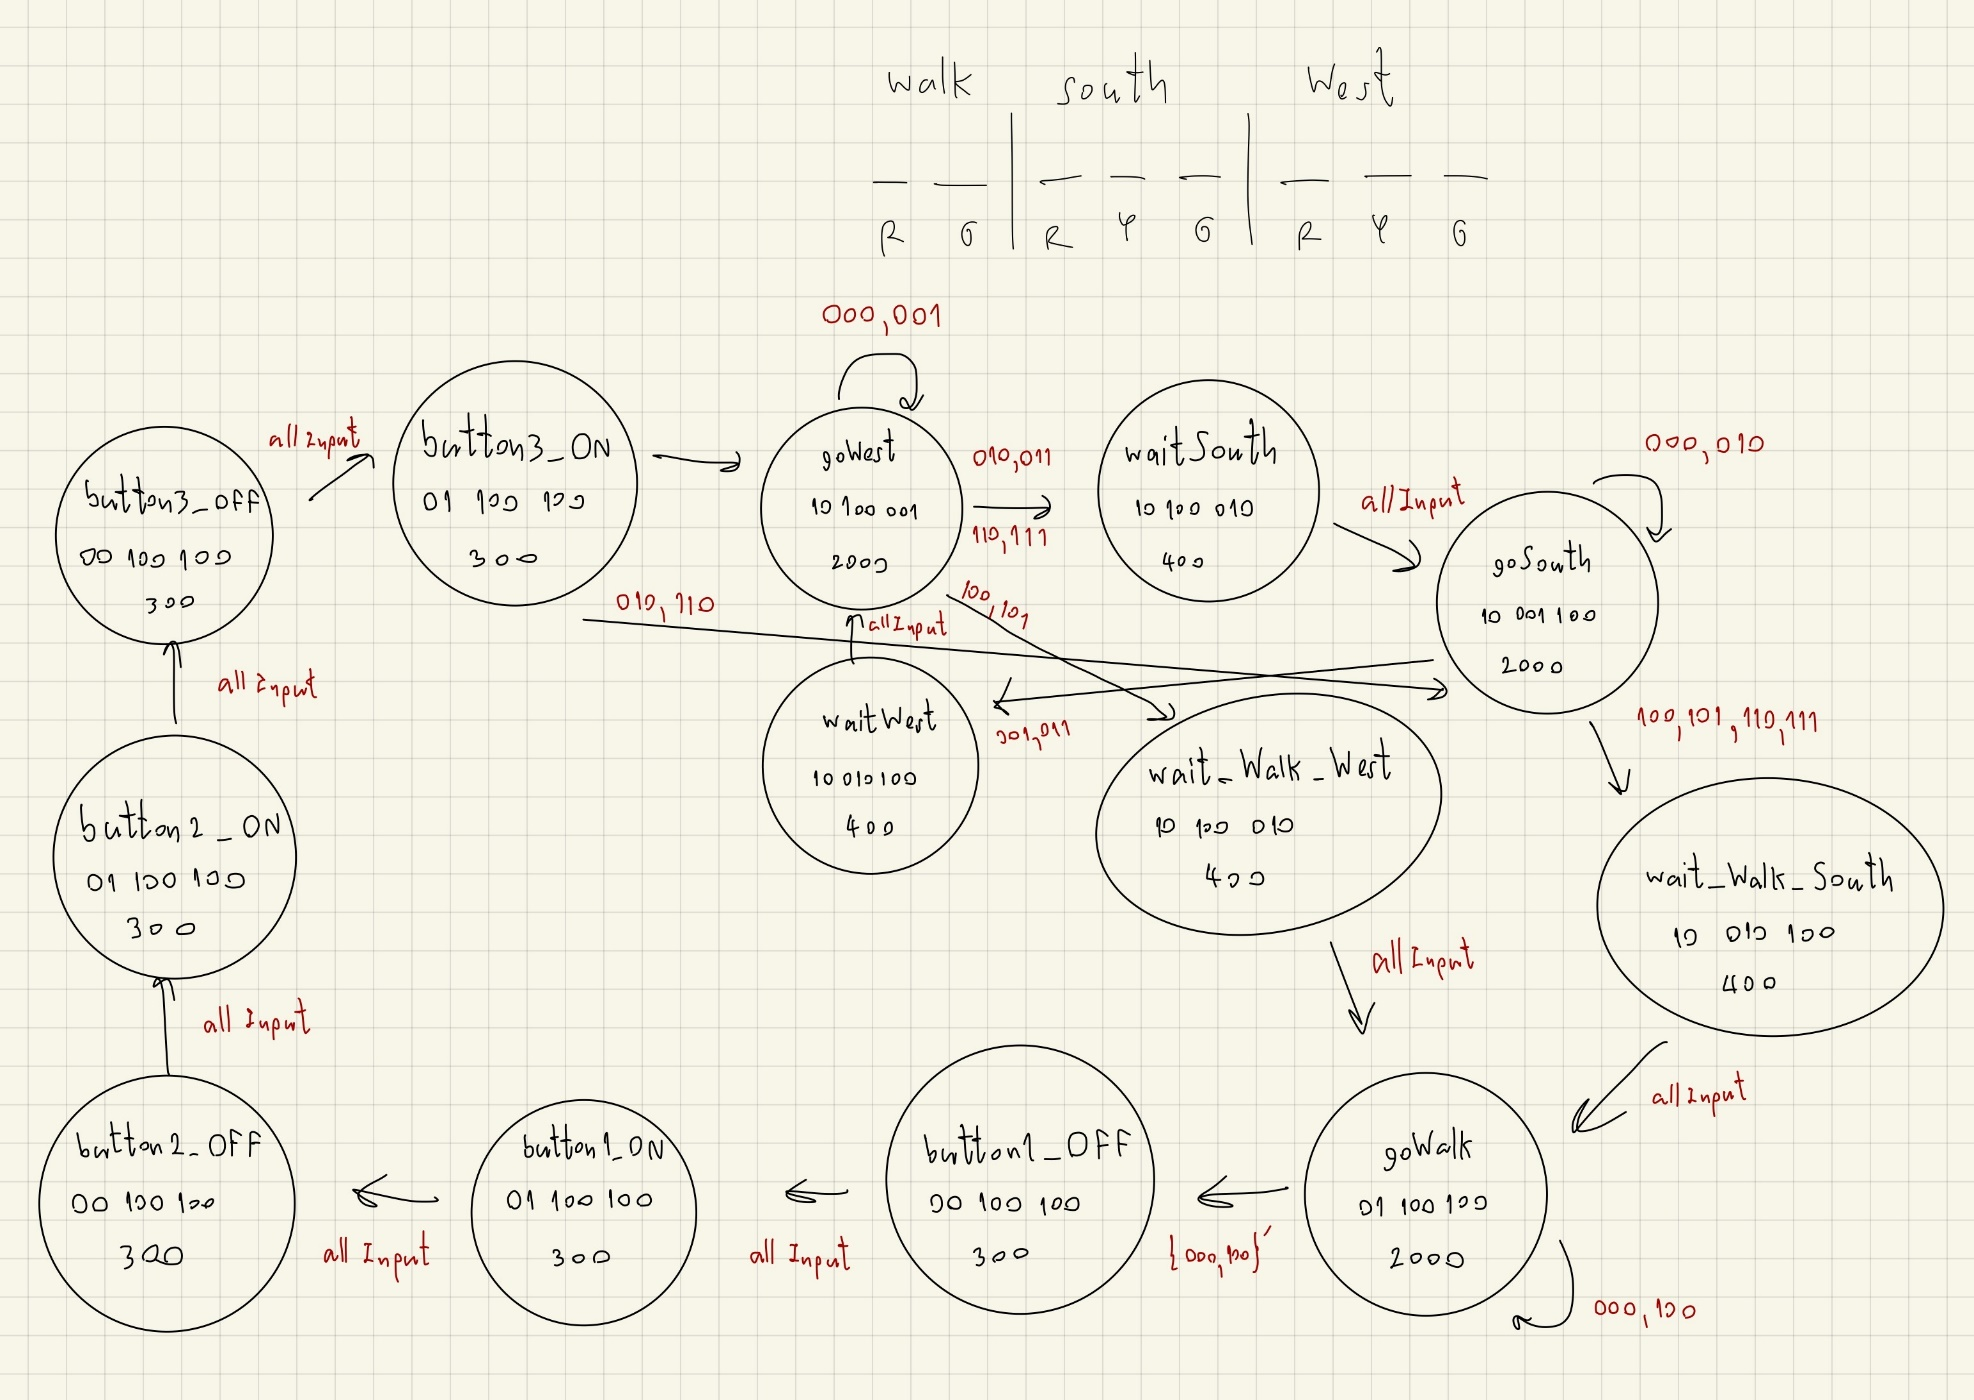 walk south West
R G R Y G R Y G
000,001
button3_OFF
00 100 100
300
all Input
button3_ON
01 100 100
300
goWest
10 100 001
2000
010,011
110,111
waitSouth
10 100 010
400
all Input
000,010
goSouth
10 001 100
2000
010,110
100,101
all Input
all Input
waitWest
10 010 100
400
001,011
wait_Walk_West
10 100 010
400
100,101,110,111
button2_ON
01 100 100
300
wait_Walk_South
10 010 100
400
all Input
all Input
all Input
button2_OFF
00 100 100
300
all Input
button1_ON
01 100 100
300
all Input
button1_OFF
00 100 100
300
{000,100}'
goWalk
01 100 100
2000
000,100